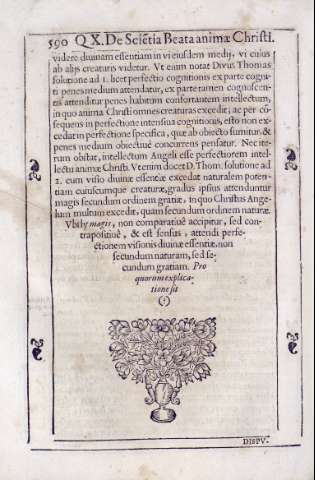 590 Q X. De Sciẽtia Beata animæ Christi.
videre diuinam essentiam in vi eiusdem medij, vi cuius
ab alijs creaturis videtur. Vt enim notat Diuus Thomas
solutione ad 1. licet perfectio cognitionis ex parte cogni
ti penes medium attendatur, ex parte tamen cognoscen-
tis attenditur penes habitum confortantem intellectum,
in quo anima Christi omnes creaturas excedit, ac per cõ-
sequens in perfectione intensiua cognitionis, esto non ex-
cedat in perfectione specifica, quæ ab obiecto sumitur, &
penes medium obiectiuè concurrens pensatur. Nec ite-
rum obstat, intellectum Angeli esse perfectiorem intel-
lectu animæ Christi. Vt enim docet D. Thom. solutione ad
2. cum visio diuinæ essentiæ excedat naturalem poten-
tiam cuiuscumque creaturæ, gradus ipsius attenduntur
magis secundum ordinem gratiæ, in quo Christus Ange-
lum multum excedit, quam secundum ordinem naturæ.
Vbi ly magis, non comparatiuè accipitur, sed con-
trapositiuè, & est sensus, attendi perfe-
ctionem visionis diuinæ essentiæ, non
secundum naturam, sed se-
cundum gratiam. Pro
quorum explica-
tione sit
(?)
DISPV-